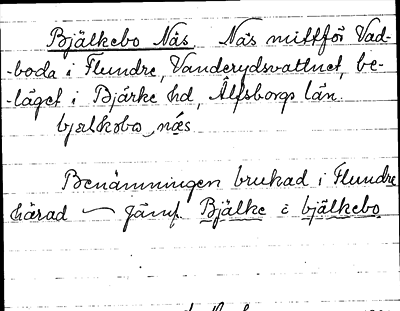 Bjälkebo Näs. Näs mittför Vad-
-boda i Flundre, Vanderydsvattnet, be-
-läget i Bjärke hd, Älfsborgs län.
bjælkəbo næs
Benämningen brukad i Flundre
härad — Jämf. Bjälke i bjälkebo